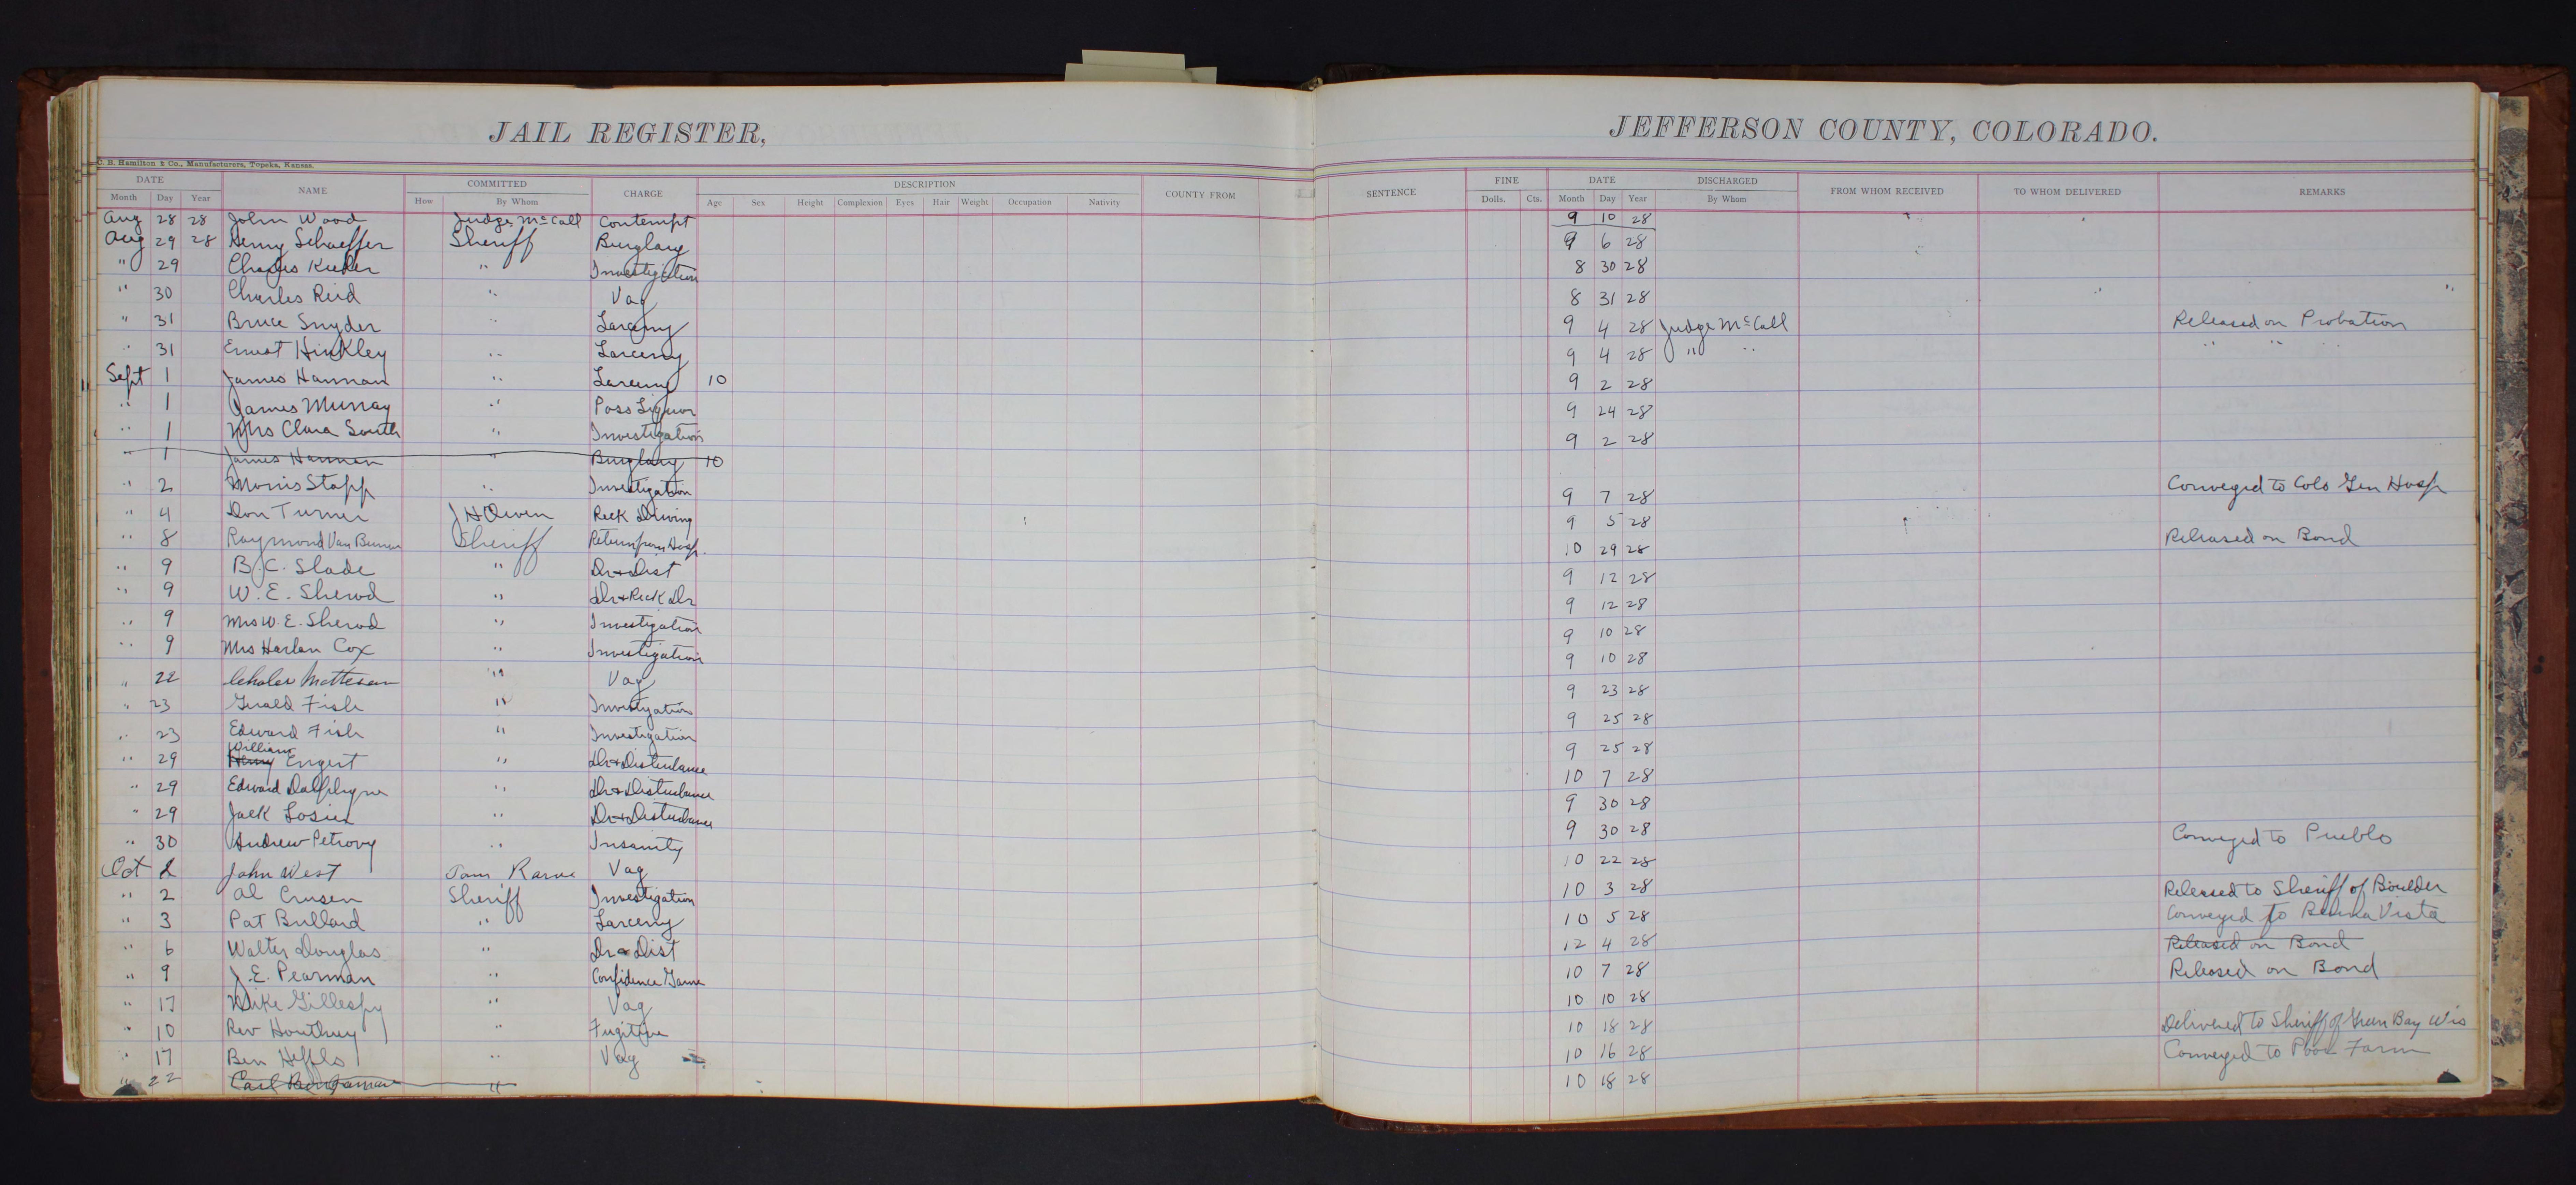 JAIL REGISTER, JEFFERSON COUNTY, COLORADO.
C. B. Hamilton & Co., Manufacturers, Topeka, Kansas.
DATE NAME COMMITTED CHARGE DESCRIPTION COUNTY FROM SENTENCE FINE DATE DISCHARGED FROM WHOM RECEIVED TO WHOM DELIVERED REMARKS
Month Day Year How By Whom Age Sex Height Complexion Eyes Hair Weight Occupation Nativity Dolls. Cts. Month Day Year By Whom
Aug 28 28 John Wood Judge McCall Contempt 9 10 28
Aug 29 28 Henry Schaeffer Sheriff Burglary 9 6 28
" 29 Charles " Investigation 8 30 28
" 30 Charles Reid " Vag 8 31 28
" 31 Bruce Snyder " Larceny 9 4 28 Judge McCall Released on Probation
" 31 Ernest Hinkley " Larceny 9 4 28 " " " " "
Sept 1 James Hannan " Larceny 10 9 2 28
" 1 James Murray " Poss Liquor 9 24 28
" 1 Mrs Clara South " Investigation 9 2 28
" 1 James Hannan " Burglary 10
" 2 Morris Stapp " Investigation 9 7 28 Conveyed to Colo Gen Hosp
" 4 Don Turner J H Owen Reck Driving 9 5 28
" 8 Raymond Van Buren Sheriff Return from Hosp. 10 29 28 Released on Bond
" 9 B. C. Slade " Dr & Dist 9 12 28
" 9 W. E. Sherod " Dr & Reck Dr 9 12 28
" 9 Mrs W. E. Sherod " Investigation 9 10 28
" 9 Mrs Harlan Cox " Investigation 9 10 28
" 22 Matteson " Vag 9 23 28
" 23 Gerald Fish " Investigation 9 25 28
" 23 Edward Fish " Investigation 9 25 28
William
" 29 Henry Engert " Dr & Disturbance 10 7 28
" 29 Edward " Dr & Disturbance 9 30 28
" 29 Jack Losier " Dr & Disturbance 9 30 28
" 30 Andrew Petrovy " Insanity 10 22 28 Conveyed to Pueblo
Oct 2 John West Tom Vag 10 3 28 Released to Sheriff of Boulder
" 2 Al Crusen Sheriff Investigation 10 5 28 Conveyed to Buena Vista
" 3 Pat Bullard " Larceny 12 4 28 Released on Bond
" 6 Walter Douglas " Dr & Dist 10 7 28 Released on Bond
" 9 J. E. Pearman " Confidence Game 10 10 28
" 17 Mike Gillespy " Vag 10 18 28 Delivered to Sheriff of Green Bay Wis
" 10 Rev " Fugitive 10 16 28 Conveyed to Poor Farm
" 17 Ben Heffls " Vag 10 18 28
" 22 Carl "